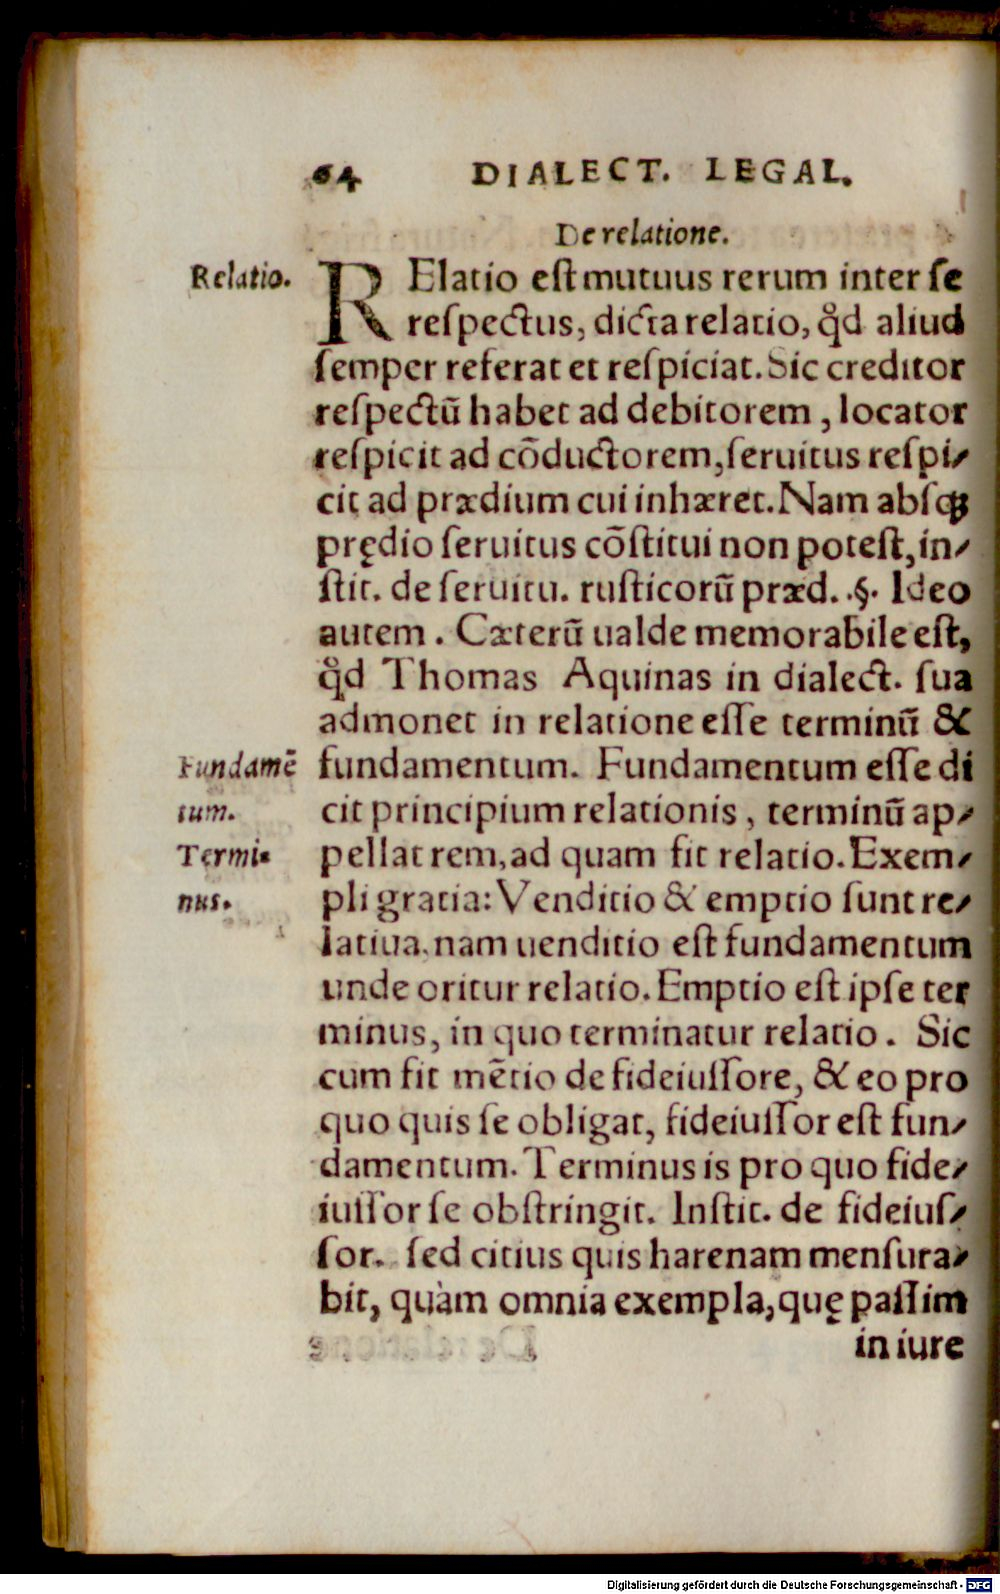 64 DIALECT. LEGAL.
De relatione.
Relatio.
RElatio eſt mutuus rerum inter ſe
reſpectus, dicta relatio, qd̊ aliud
ſemper referat et reſpiciat. Sic creditor
reſpectū habet ad debitorem, locator
reſpicit ad cōductorem, ſeruitus reſpi-
cit ad prædium cui inhæret. Nam abſqꝫ
prędio ſeruitus cōſtitui non poteſt, in-
ſtit. de ſeruitu. ruſticorū præd. .§. Ideo
autem. Cæterū ualde memorabile eſt,
qd̊ Thomas Aquinas in dialect. ſua
admonet in relatione eſſe terminū &
Fundamē
fundamentum. Fundamentum eſſe di
tum.
cit principium relationis, terminū ap-
Termi-
pellat rem, ad quam fit relatio. Exem-
nus.
pli gratia: Venditio & emptio ſunt re-
latiua. nam uenditio eſt fundamentum
unde oritur relatio. Emptio eſt ipſe ter
minus, in quo terminatur relatio. Sic
cum fit mētio de fideiuſſore, & eo pro
quo quis ſe obligat, fideiuſſor eſt fun-
damentum. Terminus is pro quo fide-
iuſſor ſe obſtringit. Inſtit. de fideiuſ-
ſor. ſed citius quis harenam menſura-
bit, quàm omnia exempla, quę paſſim
in iure
Digitalisierung gefördert durch die Deutsche Forschungsgemeinschaft - DFG